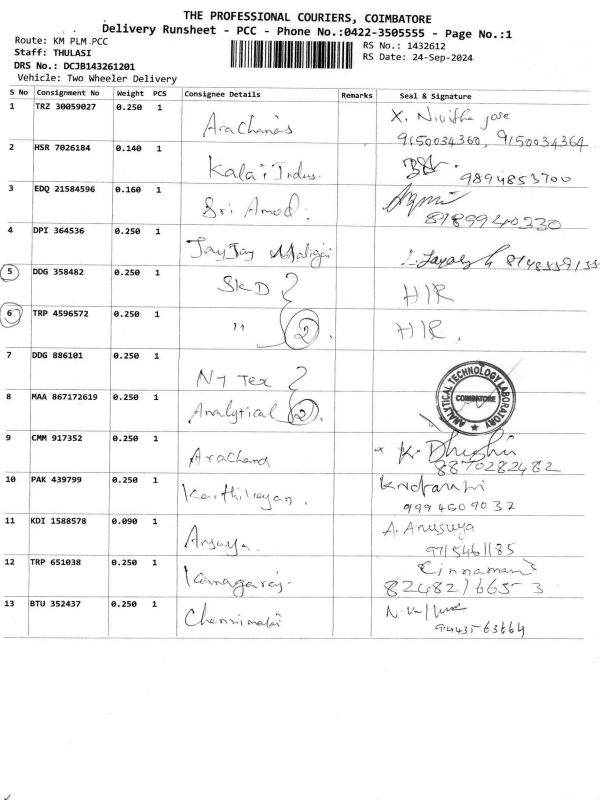 THE PROFESSIONAL COURIERS, COIMBATORE
Delivery Runsheet - PCC - Phone No.:0422-3505555 - Page No.:1
Route: KM PLM PCC
Staff: THULASI
DRS No.: DCJB143261201
Vehicle: Two Wheeler Delivery
RS No.: 1432612
RS Date: 24-Sep-2024
S No Consignment No Weight PCS Consignee Details Remarks Seal & Signature
1 TRZ 30059027 0.250 1 Arachanas X. Nivitha jose
9150034360, 9150034364
2 HSR 7026184 0.140 1 Kalai Indus.
9894853700
3 EDQ 21584596 0.160 1 Sri Amod.
8189940230
4 DPI 364536 0.250 1 JayJay Maligai
5 DDG 358482 0.250 1 SKD HIR
6 TRP 4596572 0.250 1 " 2 HIR.
7 DDG 886101 0.250 1 N7 Tex
8 MAA 867172619 0.250 1 Analytical 2. ANALYTICAL TECHNOLOGY LABORATORY COIMBATORE
9 CMM 917352 0.250 1 Arachand K. Dhighu
8870282482
10 PAK 439799 0.250 1 Karthikeyan.
9994509032
11 KDI 1588578 0.090 1 Ansuya. A. Anusuya
9715461185
12 TRP 651038 0.250 1 Kanagaraj. Cinnamani
8248216653
13 BTU 352437 0.250 1 Chennimalai
9443563664